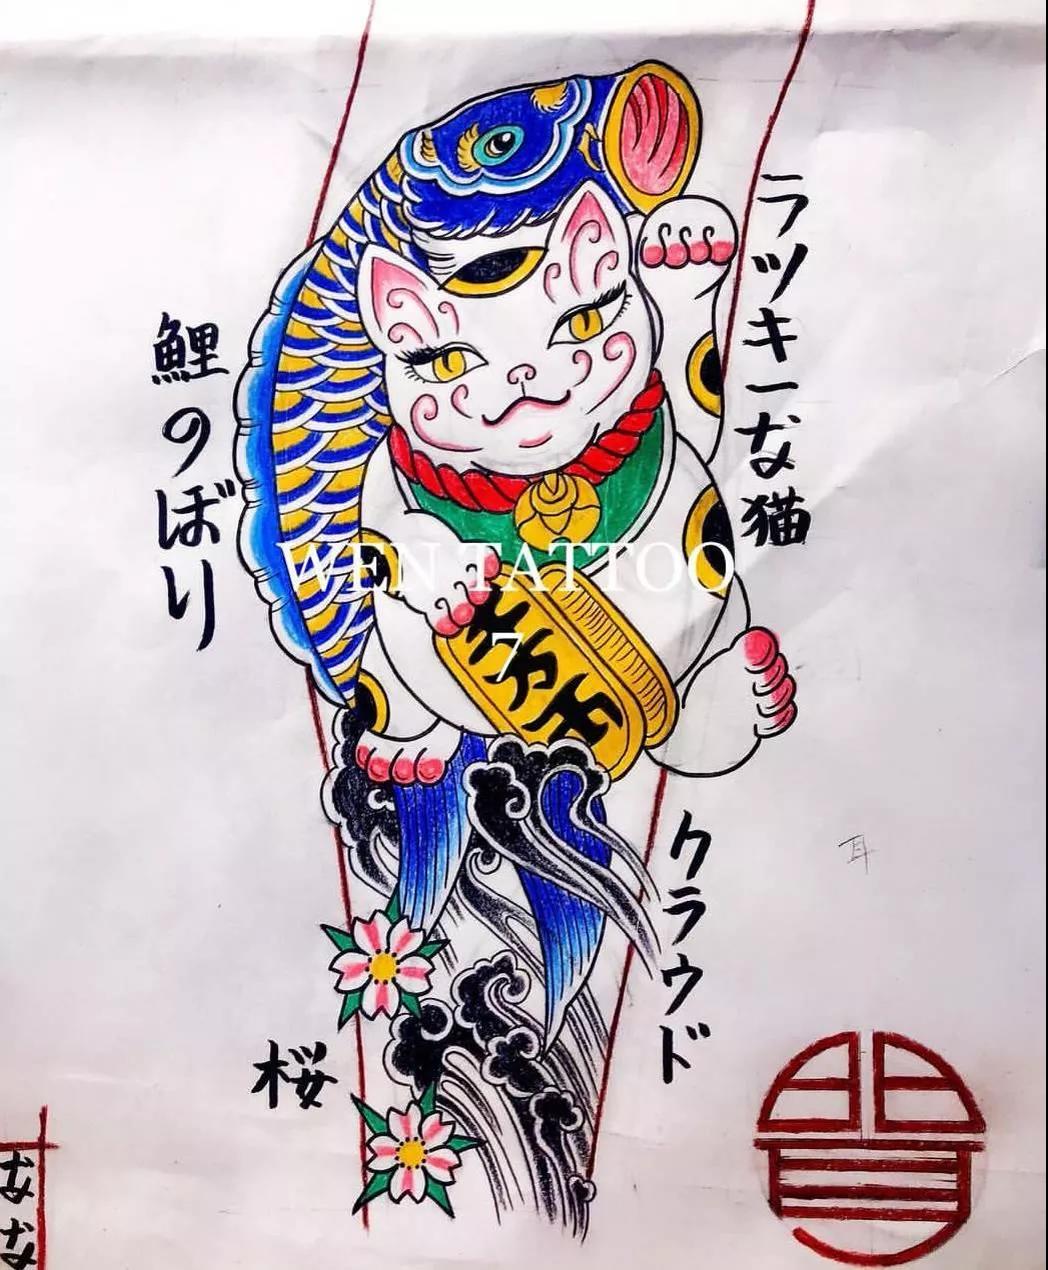 ラツキーな猫
鯉のぼり
WEN TATTOO
7
千万両
クラウド
桜
なな